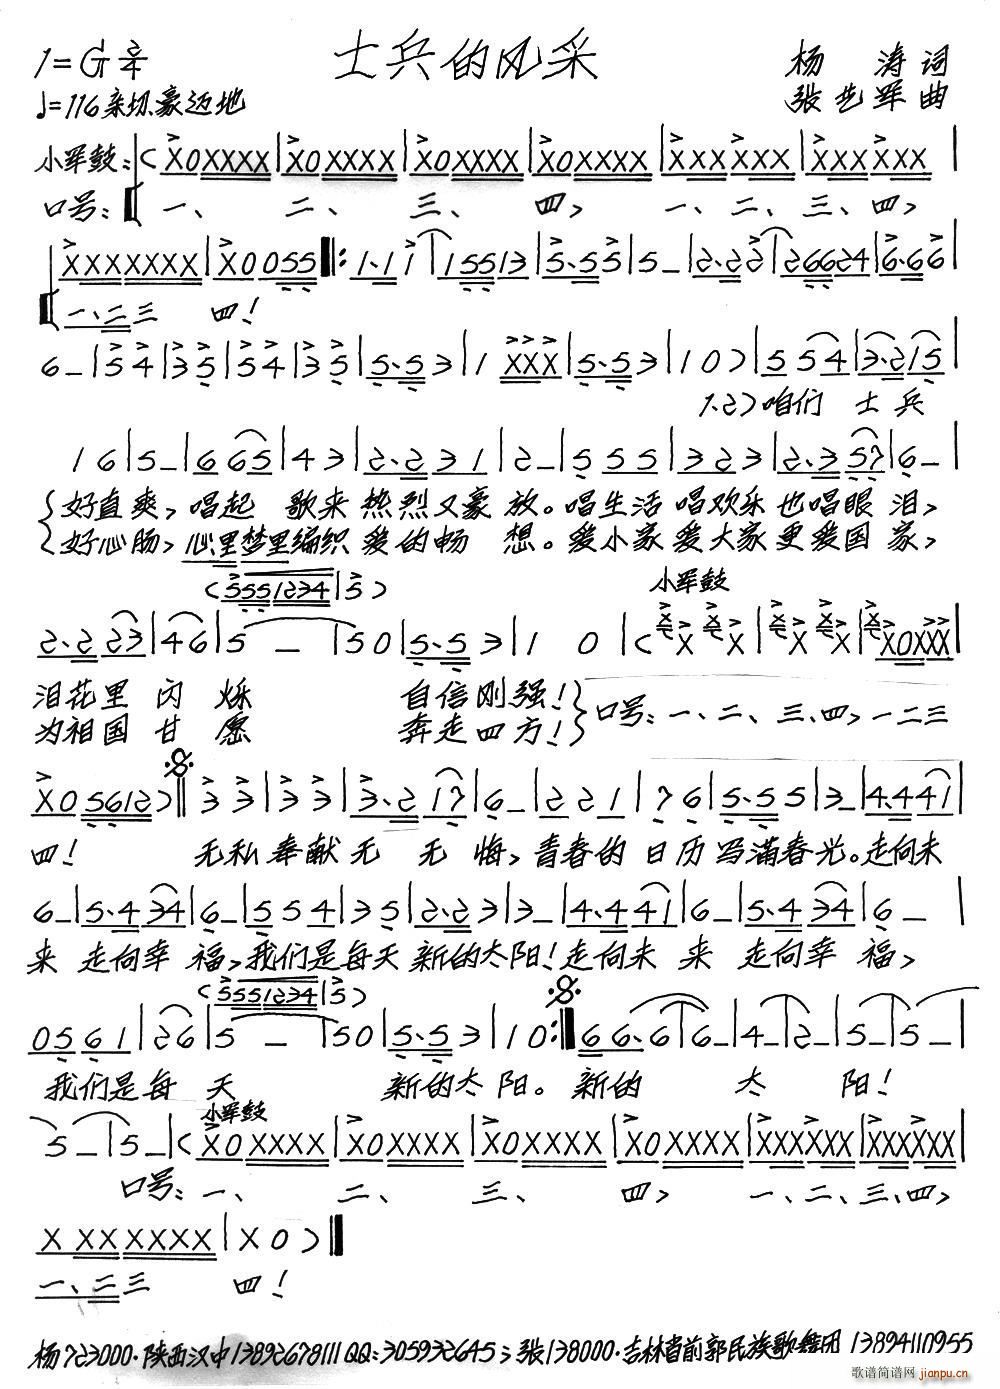 士兵的风采
1=G 2/4
杨涛词
♩=116 亲切、豪迈地
张艺军曲
小军鼓:(X0XXXX|X0XXXX|X0XXXX|X0XXXX|XXXXXX|XXXXXX|
口号:一、二、三、四,一、二、三、四,
XXXXXXX|X0055‖:1·11|155113|5·555|5–|2·222|26624|6·666|
一、二三 四!
6–|54|35|54|35|5·53|1XXX|5·53|10)|554|3·215|
1.2)咱们 士兵
16|5–|665|43|2·231|2–|555|323|2·357|6–|
好直爽,唱起 歌来 热烈又豪放。唱生活 唱欢乐也唱眼泪,
好心肠,心里梦里编织爱的畅想。爱小家爱大家更爱国家,
(5551234|5)
小军鼓
2·223|46|5–|50|5·53|10|(XX XX|XX XX|XX XX|X0XXX|
泪花里闪烁 自信刚强!
为祖国甘愿 奔走四方!
口号:一、二、三、四,一二三
X05612)‖33|33|3·217|6–|221|76|5·55|3–|4·441|
四! 无私奉献无无悔,青春的日历写满春光。走向未
6–|5·434|6–|554|35|2·23|3–|4·441|6–|5·434|6–|
来 走向幸福,我们是每天新的太阳!走向未来 走向幸福,
(5551234|5)
0561|26|5–|50|5·53|10:‖66·6|6–|4–|2–|5–|5–|
我们是每天 新的太阳。新的 太 阳!
小军鼓
5–|5–|(X0XXXX|X0XXXX|X0XXXX|X0XXXX|XXXXXX|XXXXXX|
口号:一、二、三、四,一、二、三、四,
XXXXXXX|X0)‖
一、二三 四!
杨723000·陕西汉中13892678111QQ:305932645;张138000·吉林省前郭民族歌舞团 13894110955
歌谱简谱网
jianpu.cn